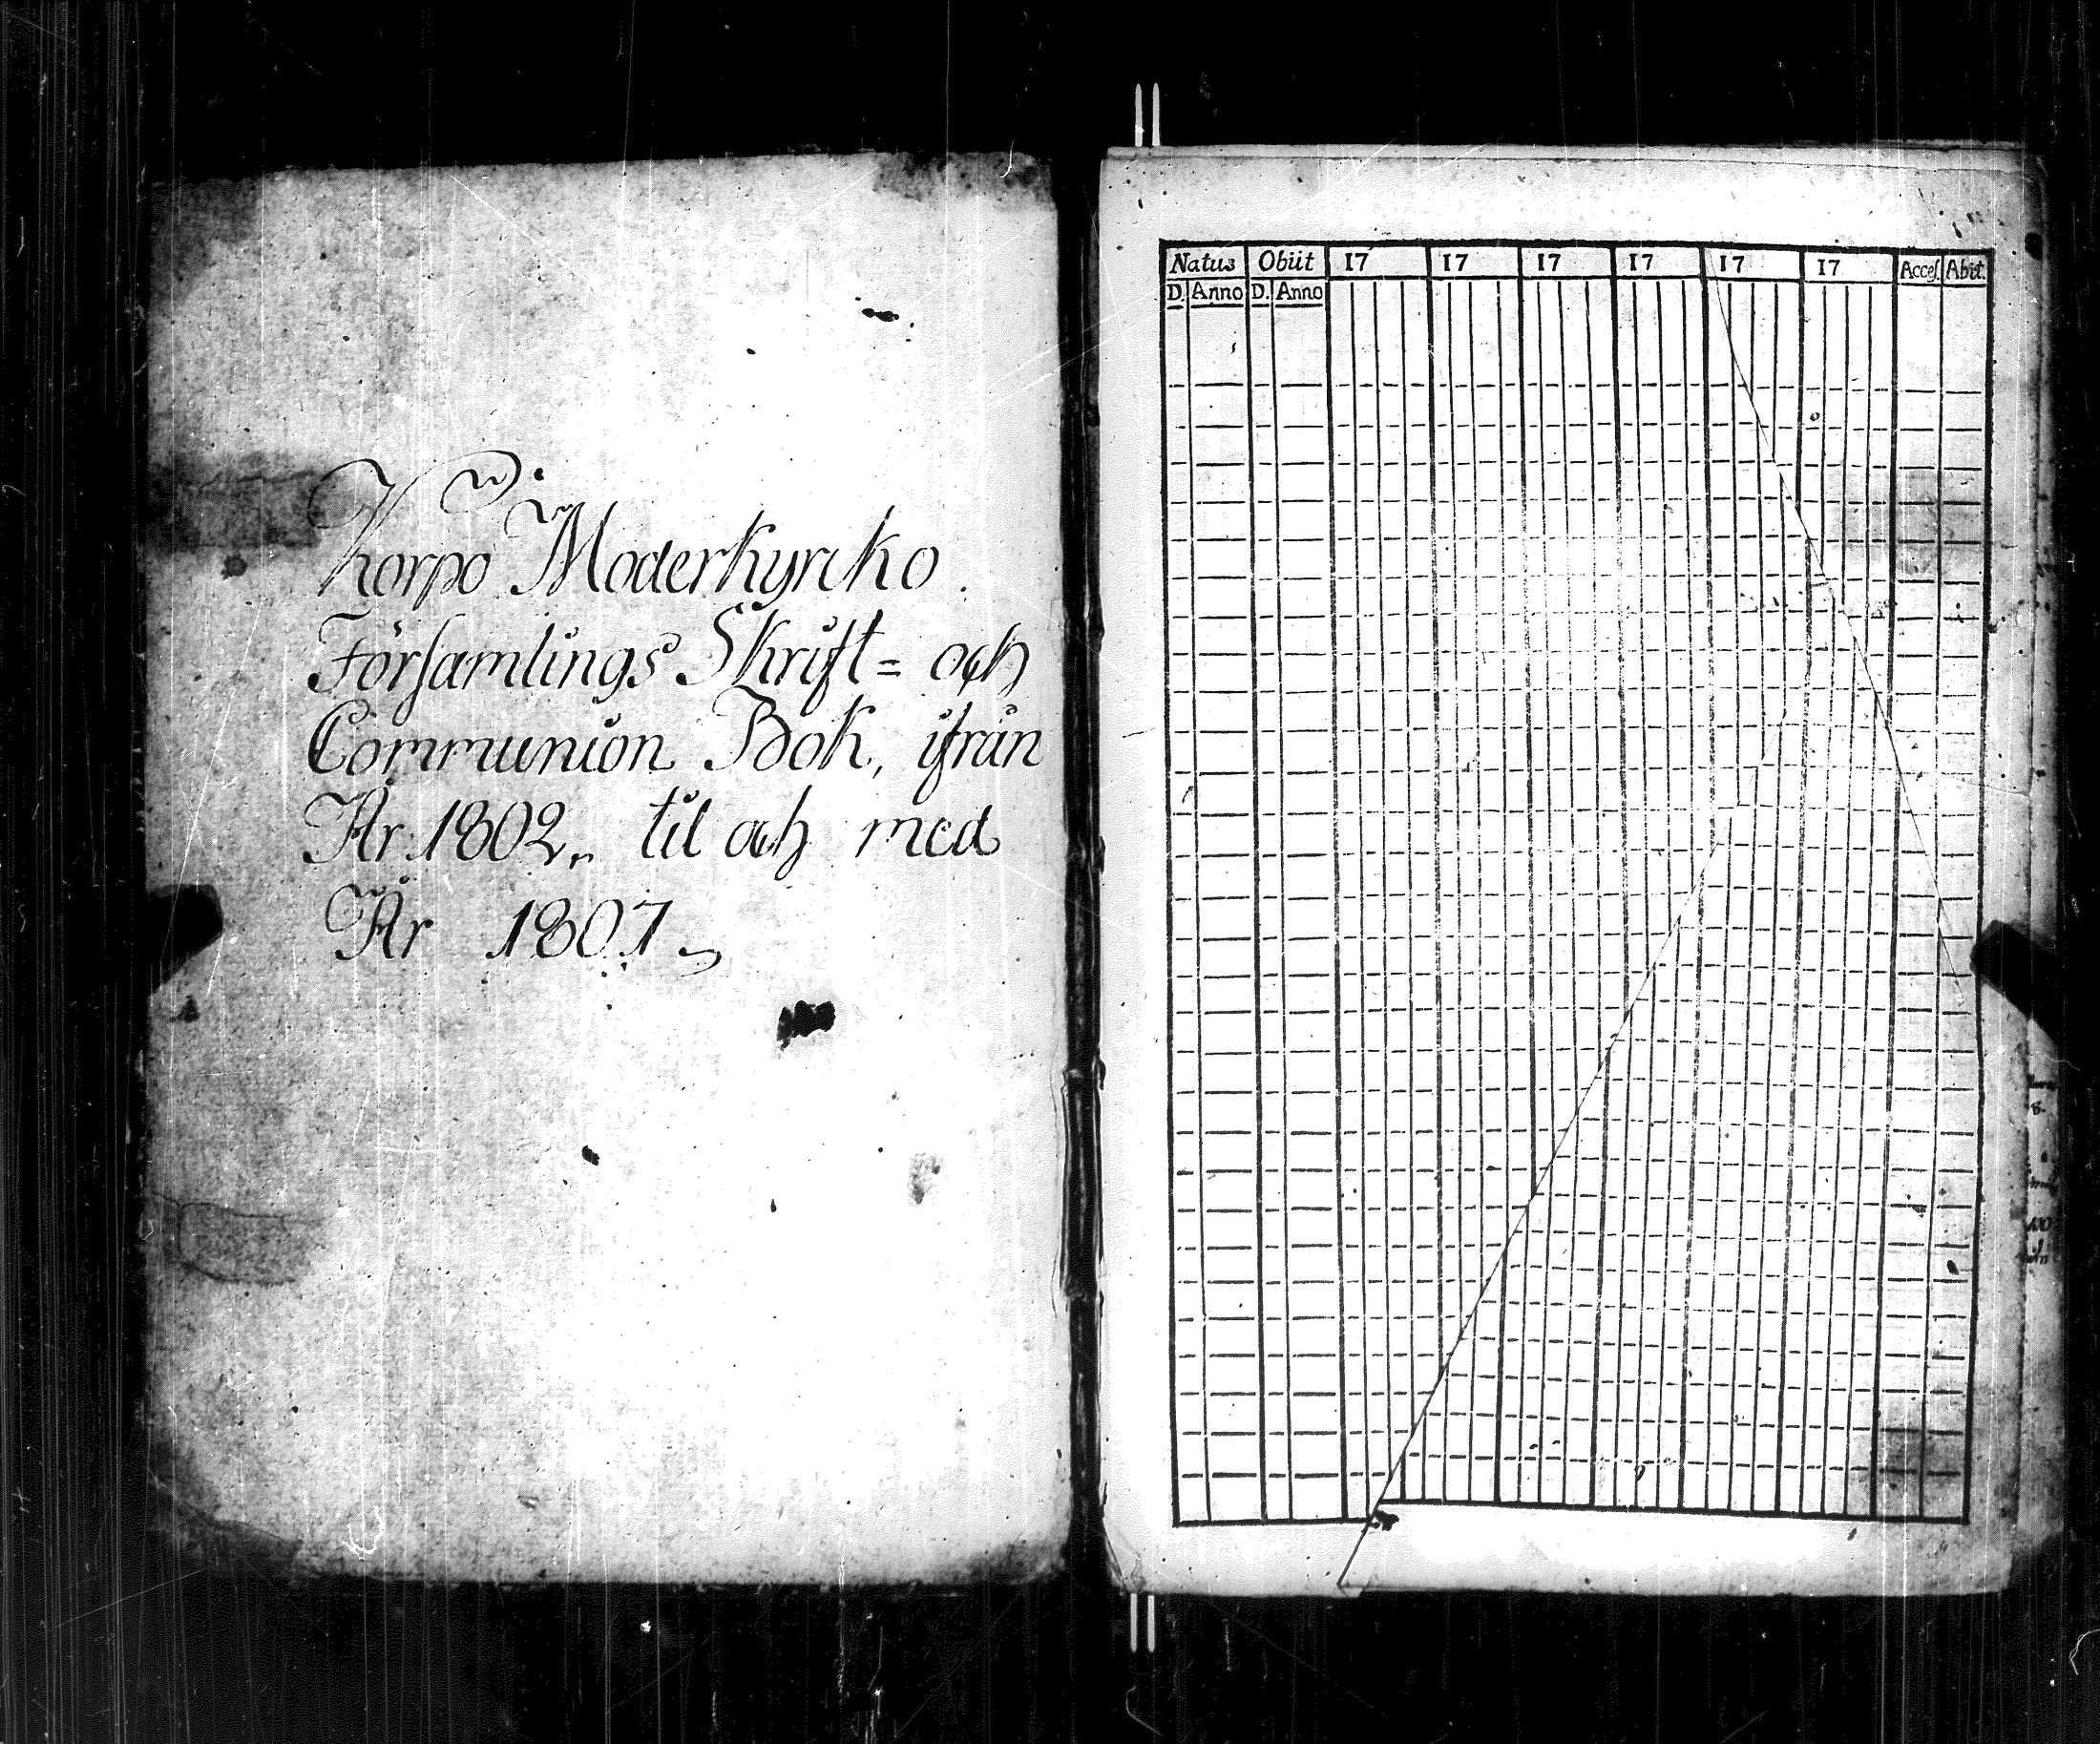 Korpo Moderkyrcko
Församlings Skrift= och
Communion Bok, ifrån
År 1802, til och med
År 1807
Natus Obiit 17 17 17 17 17 17 Acces. Abit.
D. Anno D. Anno